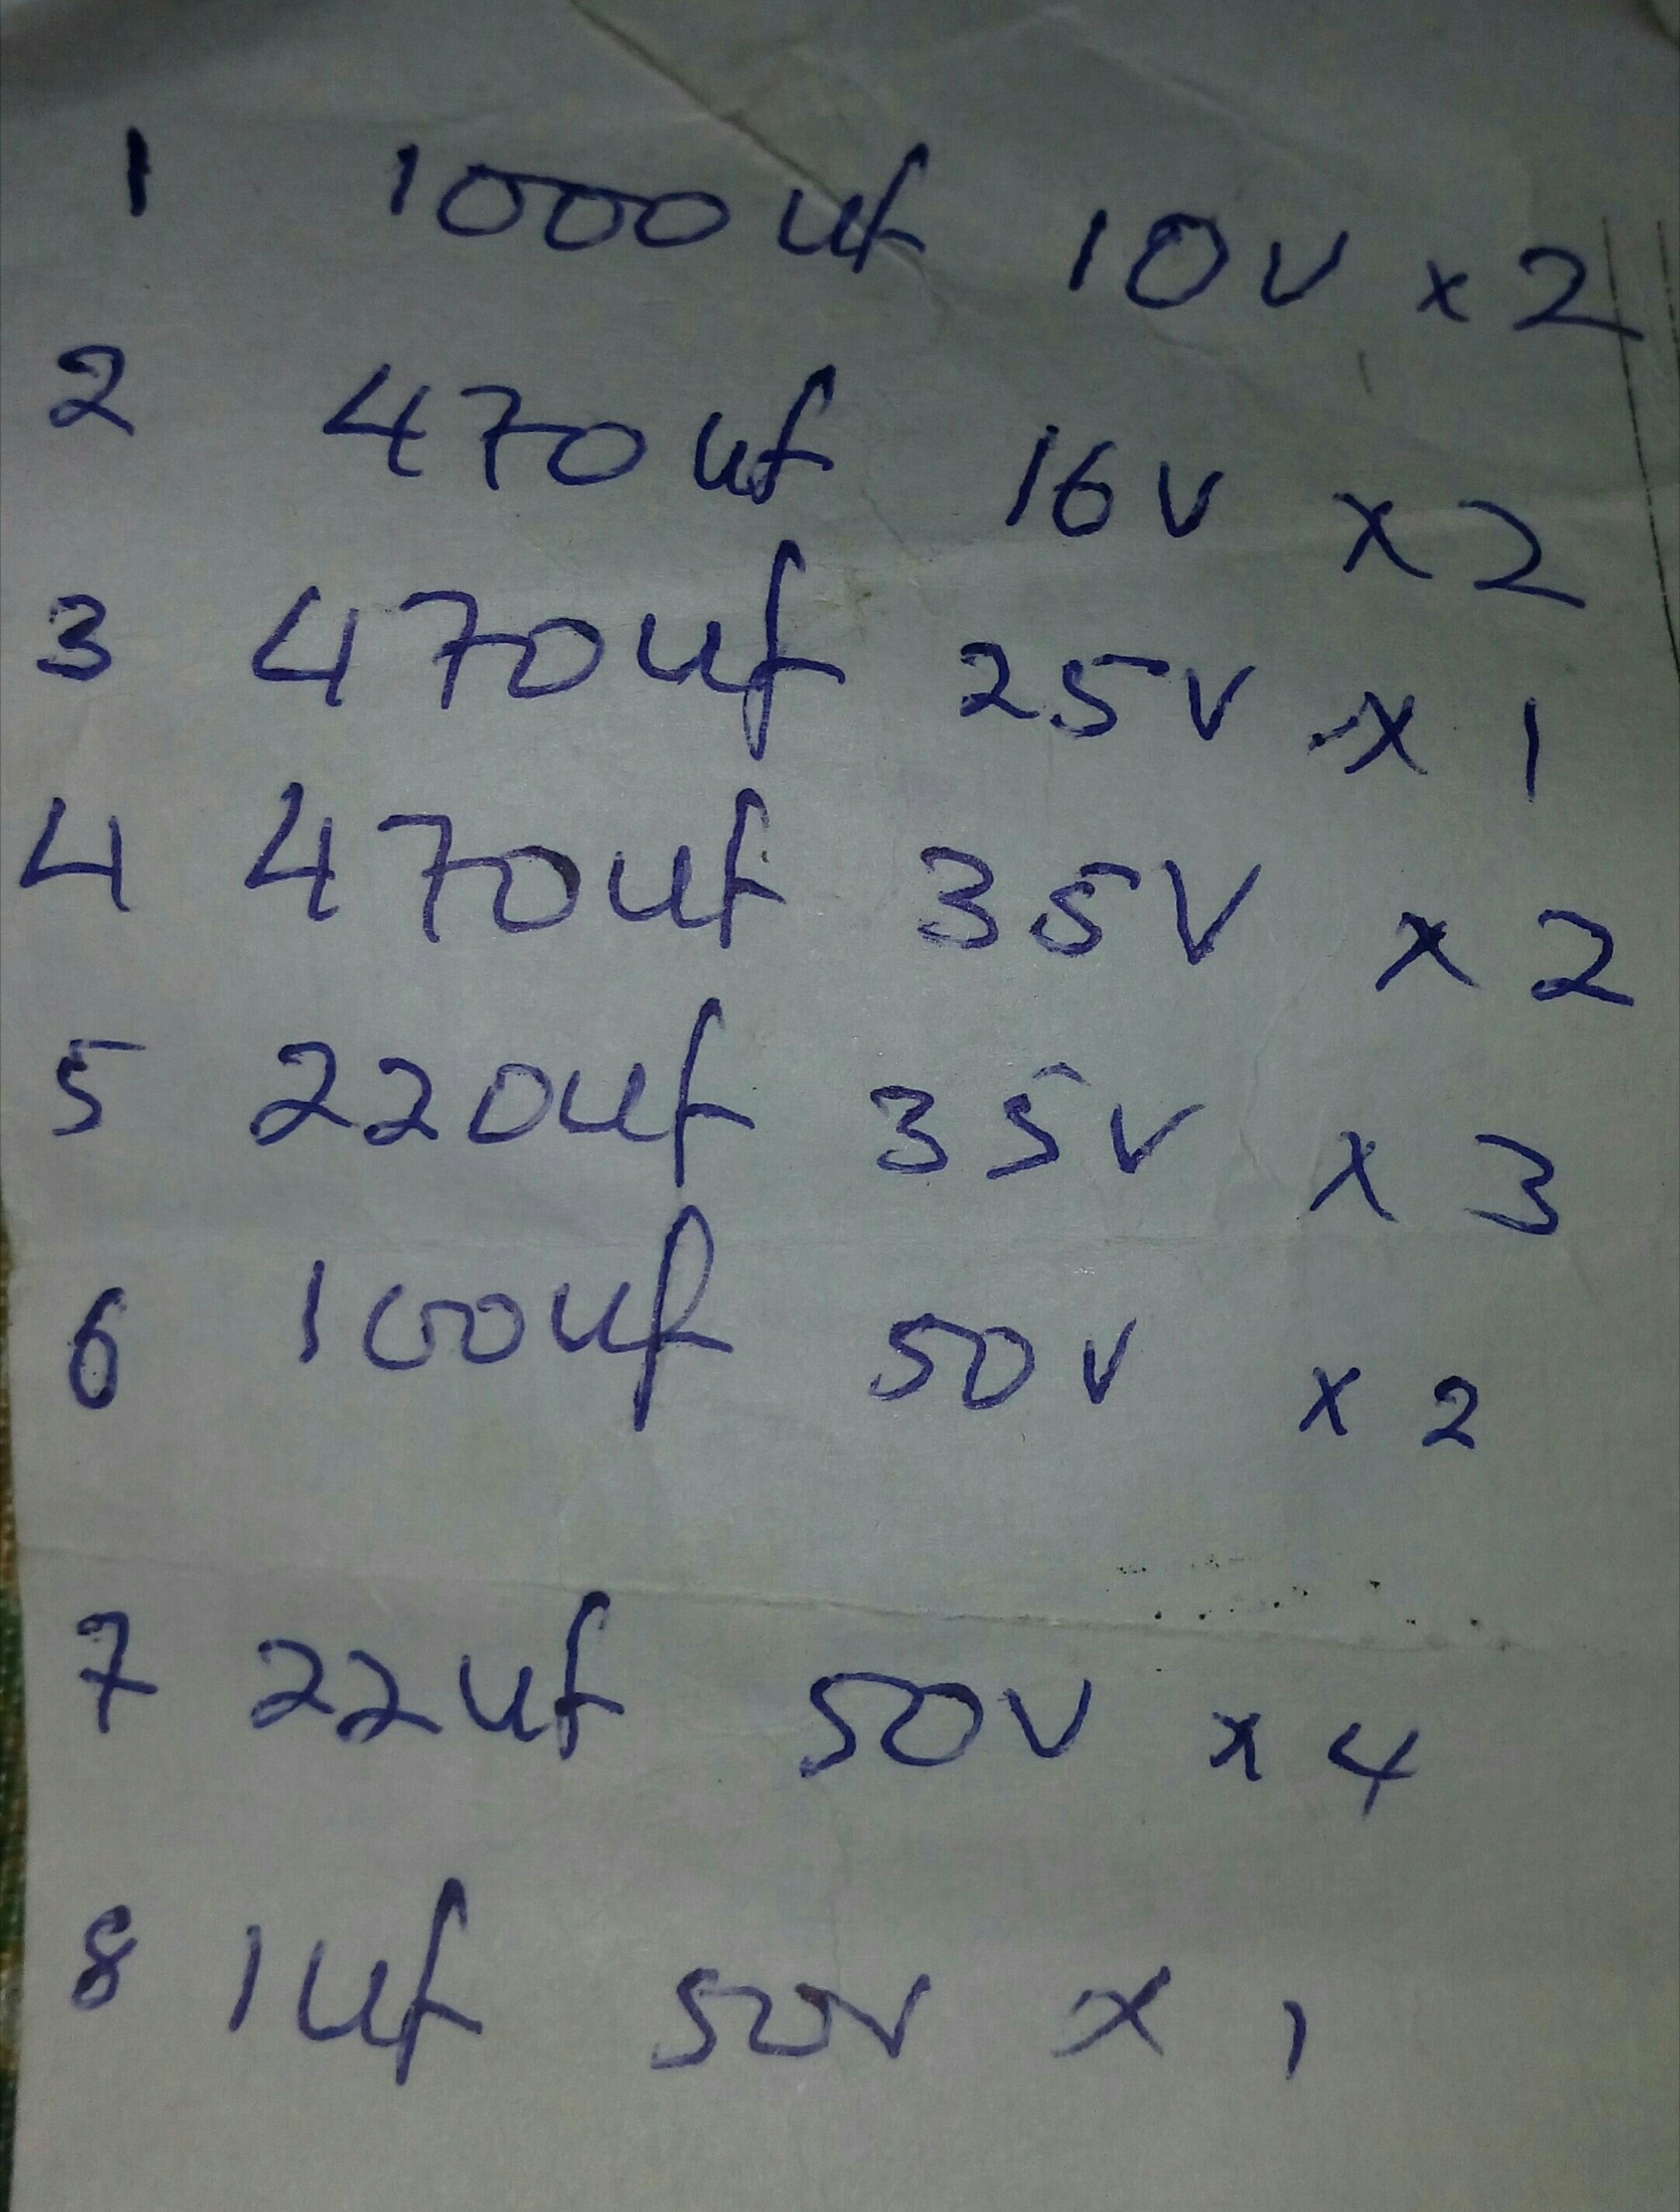 1 1000uf 10v x2
2 470uf 16v x2
3 470uf 25v x 1
4 470uf 35V x 2
5 220uf 35v x 3
6 100uf 50v x 2
7 22uf 50v x 4
8 1uf 50v x 1